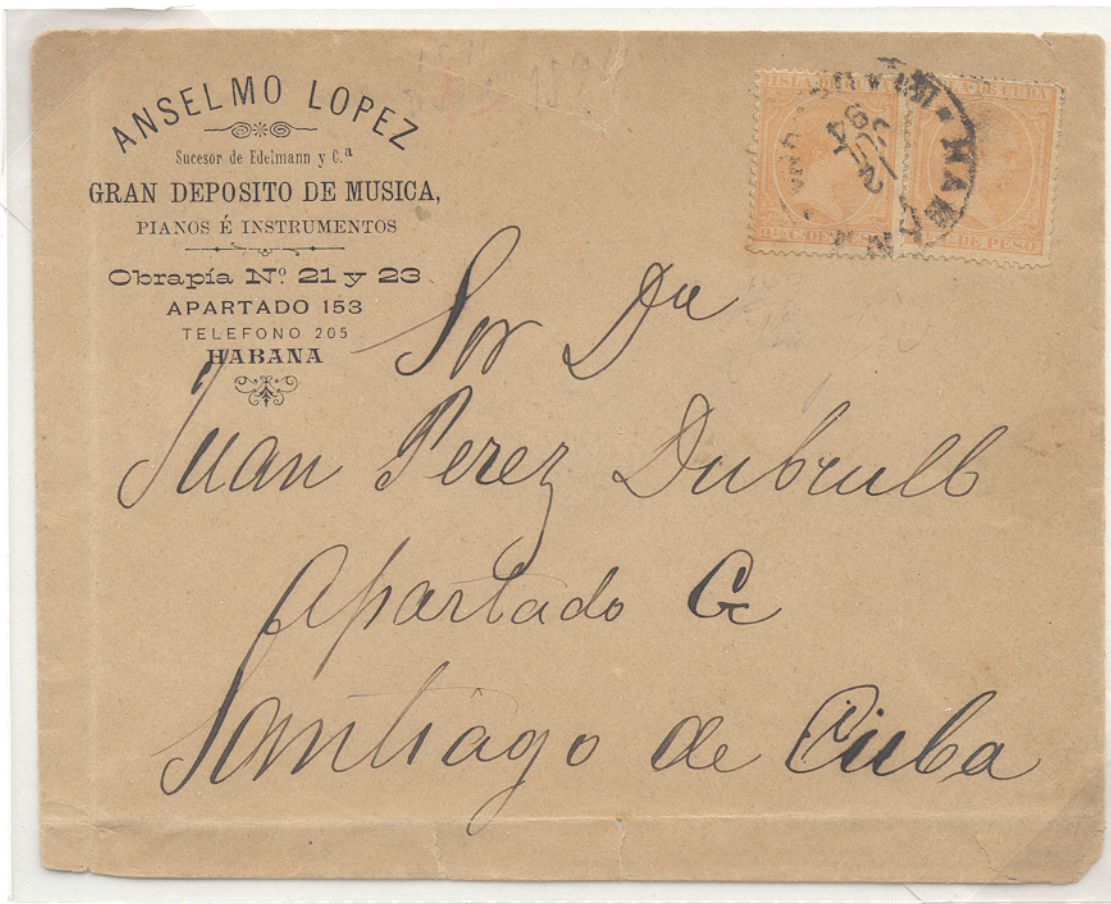 ANSELMO LOPEZ
Sucesor de Edelmann y C.ª
GRAN DEPOSITO DE MUSICA,
PIANOS É INSTRUMENTOS
Obrapía Nº. 21 y 23
APARTADO 153
TELEFONO 205
HABANA
ISLA DE CUBA
ISLA DE CUBA
HABANA
JUL
94
C. DE PESO
C. DE PESO
Sor Dn
Juan Perez Dubrull
Apartado G
Santiago de Cuba